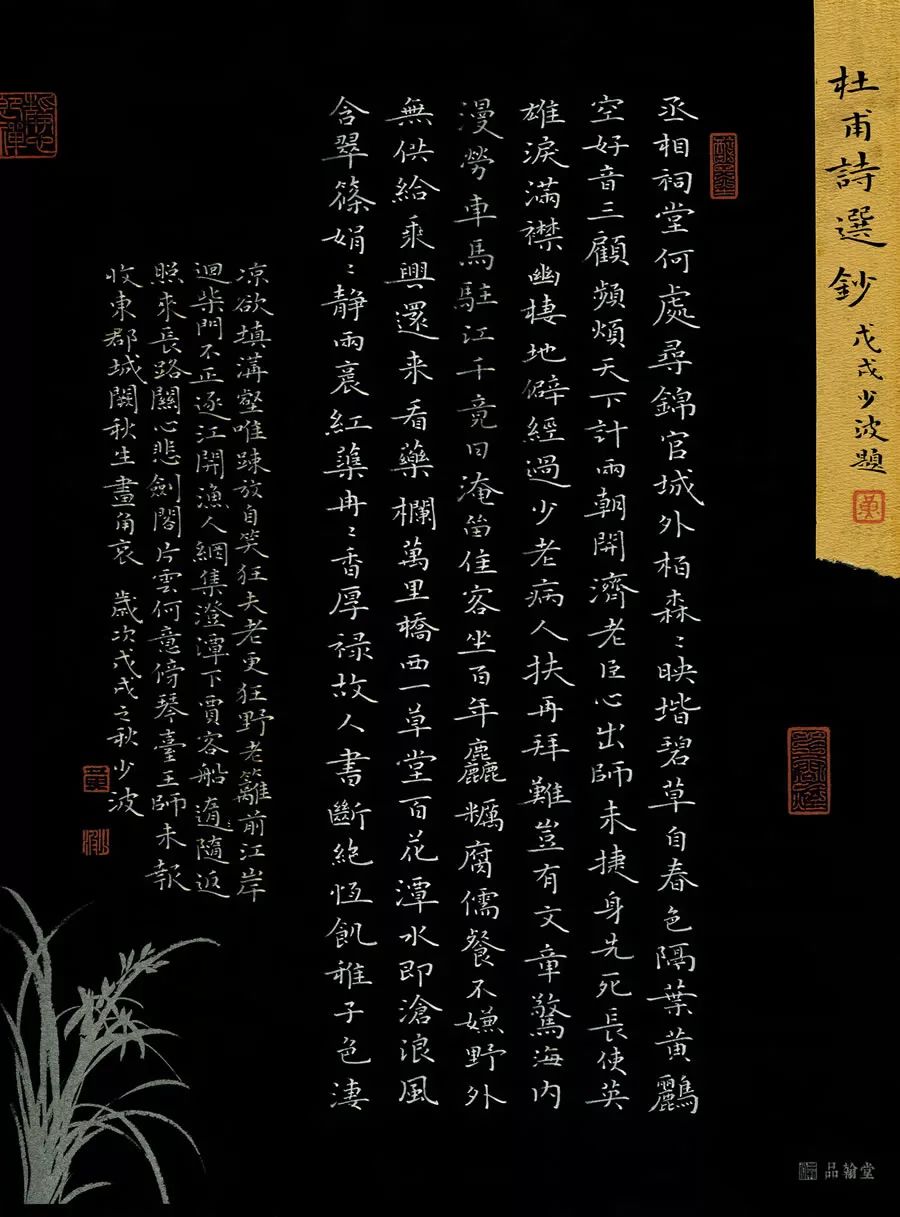 杜甫詩選鈔
戊戌少波題
黃
丞相祠堂何處尋錦官城外栢森〻映堦碧草自春色隔葉黃鸝
空好音三顧頻煩天下計兩朝開濟老臣心出師未捷身先死長使英
雄淚滿襟幽棲地僻經過少老病人扶再拜難豈有文章驚海內
漫勞車馬駐江干竟日淹留佳客坐百年麤糲腐儒餐不嫌野外
無供給乘興還来看藥欄萬里橋西一草堂百花潭水即滄浪風
含翠篠娟〻静雨裛紅蕖冉〻香厚禄故人書斷絕恆飢稚子色淒
凉欲填溝壑唯踈放自笑狂夫老更狂野老籬前江岸
迴柴門不正逐江開漁人網集澄潭下賈客船隨返
照来長路關心悲劍閣片雲何意傍琴臺王師未報
收東郡城闕秋生畫角哀 歲次戊戌之秋少波
黃
品翰堂